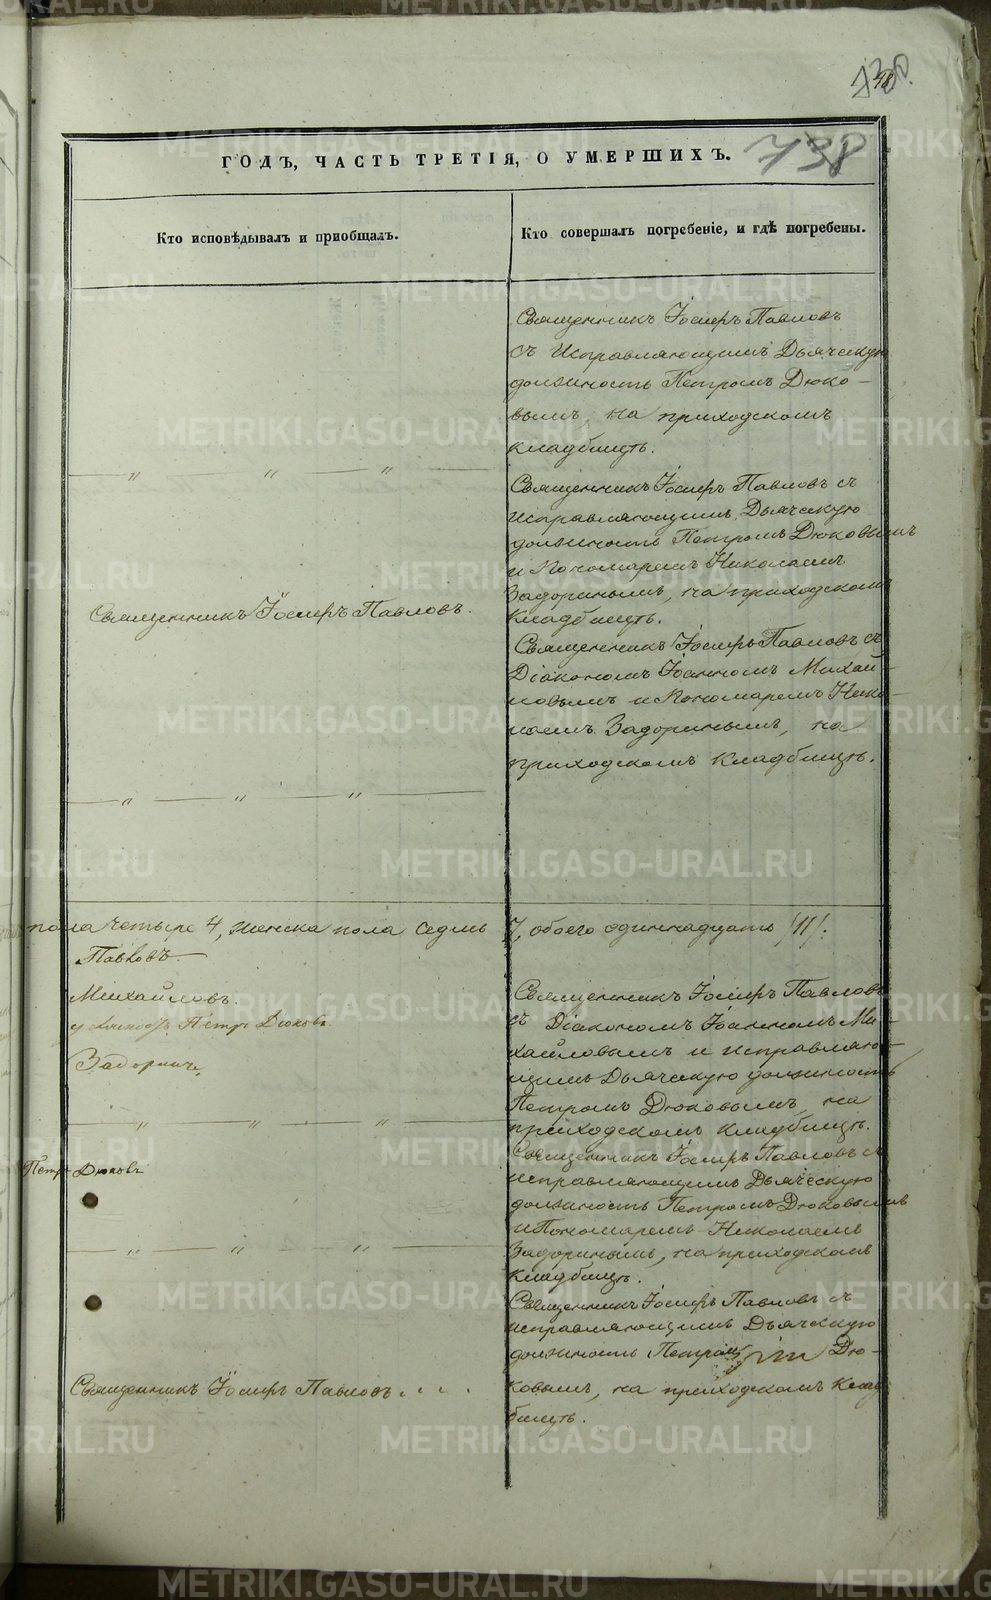 738
ГОДЪ, ЧАСТЬ ТРЕТІЯ, О УМЕРШИХЪ.
Кто исповѣдывалъ и пріобщалъ.
Кто совершалъ погребеніе, и гдѣ погребены.
Священникъ Іосифъ Павловъ
съ Исправляющимъ Дьяческую
должность Петромъ Дюко-
вымъ, на приходскомъ
кладбищѣ.
— " — " — " —
Священникъ Іосифъ Павловъ съ
исправляющимъ Дьяческую
должность Петромъ Дюковымъ
и Пономаремъ Николаемъ
Задоринымъ, на приходскомъ
Кладбищѣ.
Священникъ Іосифъ Павловъ.
Священникъ Іосифъ Павловъ съ
Діакономъ Іоанномъ Михай-
ловымъ и Пономаремъ Нико-
лаемъ Задоринымъ, на
приходскомъ Кладбищѣ.
— " — " — " —
пола четыре 4, женска пола седмь 7, обоего одиннадцать /11/.
Павловъ
Михайловъ
Петръ Дюковъ
Задоринъ
Священникъ Іосифъ Павловъ
съ Діакономъ Іоанномъ Ми-
хайловымъ и исправляю-
щимъ Дьяческую должность
Петромъ Дюковымъ, на
приходскомъ кладбищѣ.
— " — " — " —
Петръ Дюковъ
Священникъ Іосифъ Павловъ съ
исправляющимъ Дьяческую
должность Петромъ Дюковымъ
и Пономаремъ Николаемъ
Задоринымъ, на приходскомъ
Кладбищѣ.
— " — " — " —
Священникъ Іосифъ Павловъ съ
исправляющимъ Дьяческую
должность Петромъ Дю-
ковымъ, на приходскомъ Клад-
бищѣ.
Священникъ Іосифъ Павловъ
METRIKI.GASO-URAL.RU